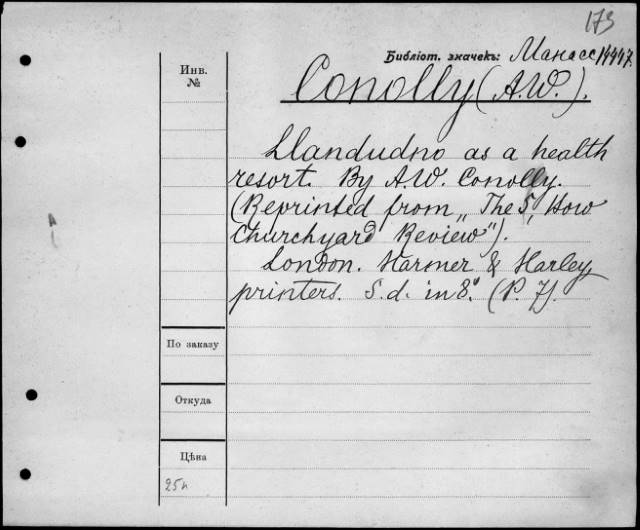 173
Библіот. значекъ: Манасс/14447.
Инв.
№
Conolly (A.W.).
Llandudno as a health
resort. By A.W. Conolly.
(Reprinted from „The S, How
Churchyard Review").
London. Harmer & Harley,
printers. S.d. in 8°. (P. 7).
По заказу
Откуда
Цѣна
25к